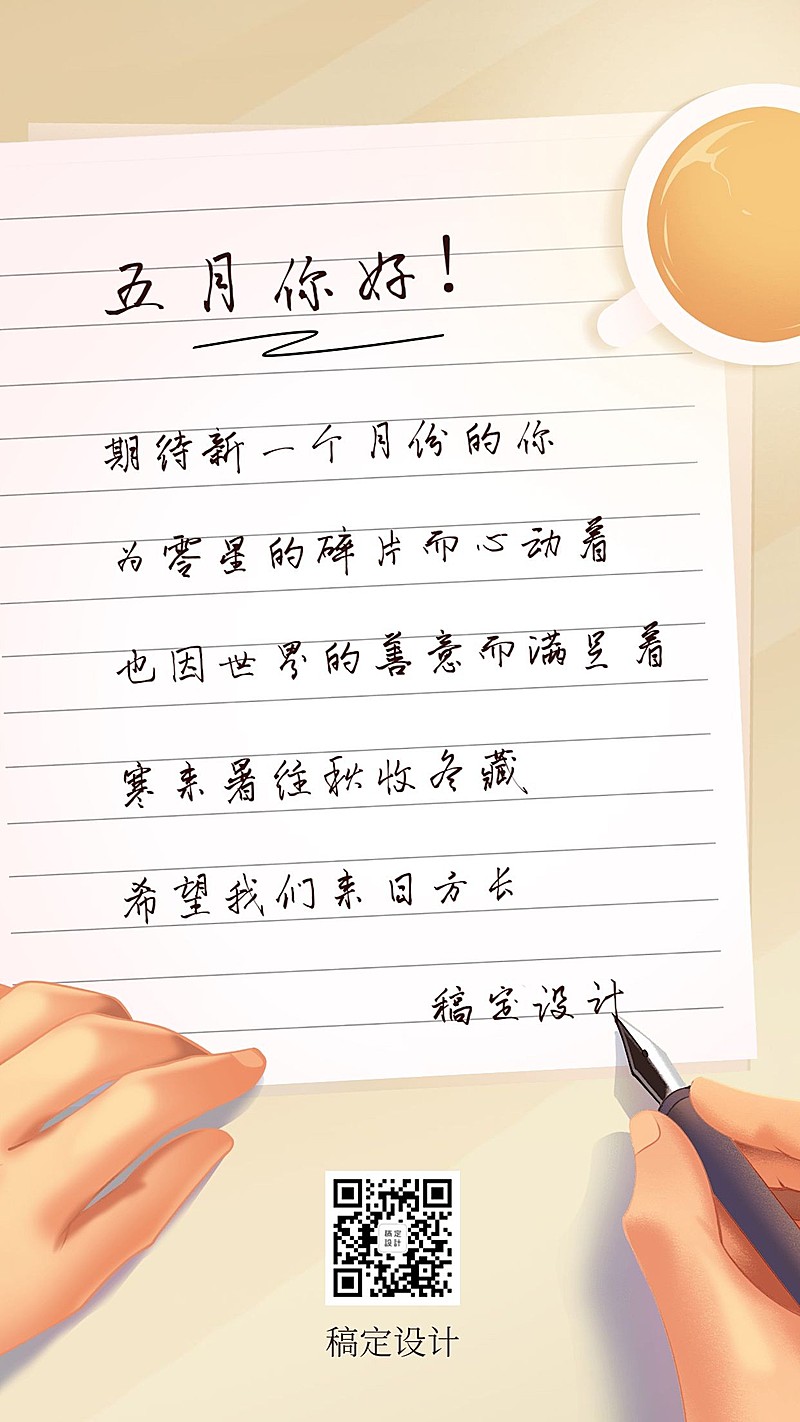 五月你好！
期待新一个月份的你
为零星的碎片而心动着
也因世界的善意而满足着
寒来暑往秋收冬藏
希望我们来日方长
稿定设计
稿定
設計
稿定设计